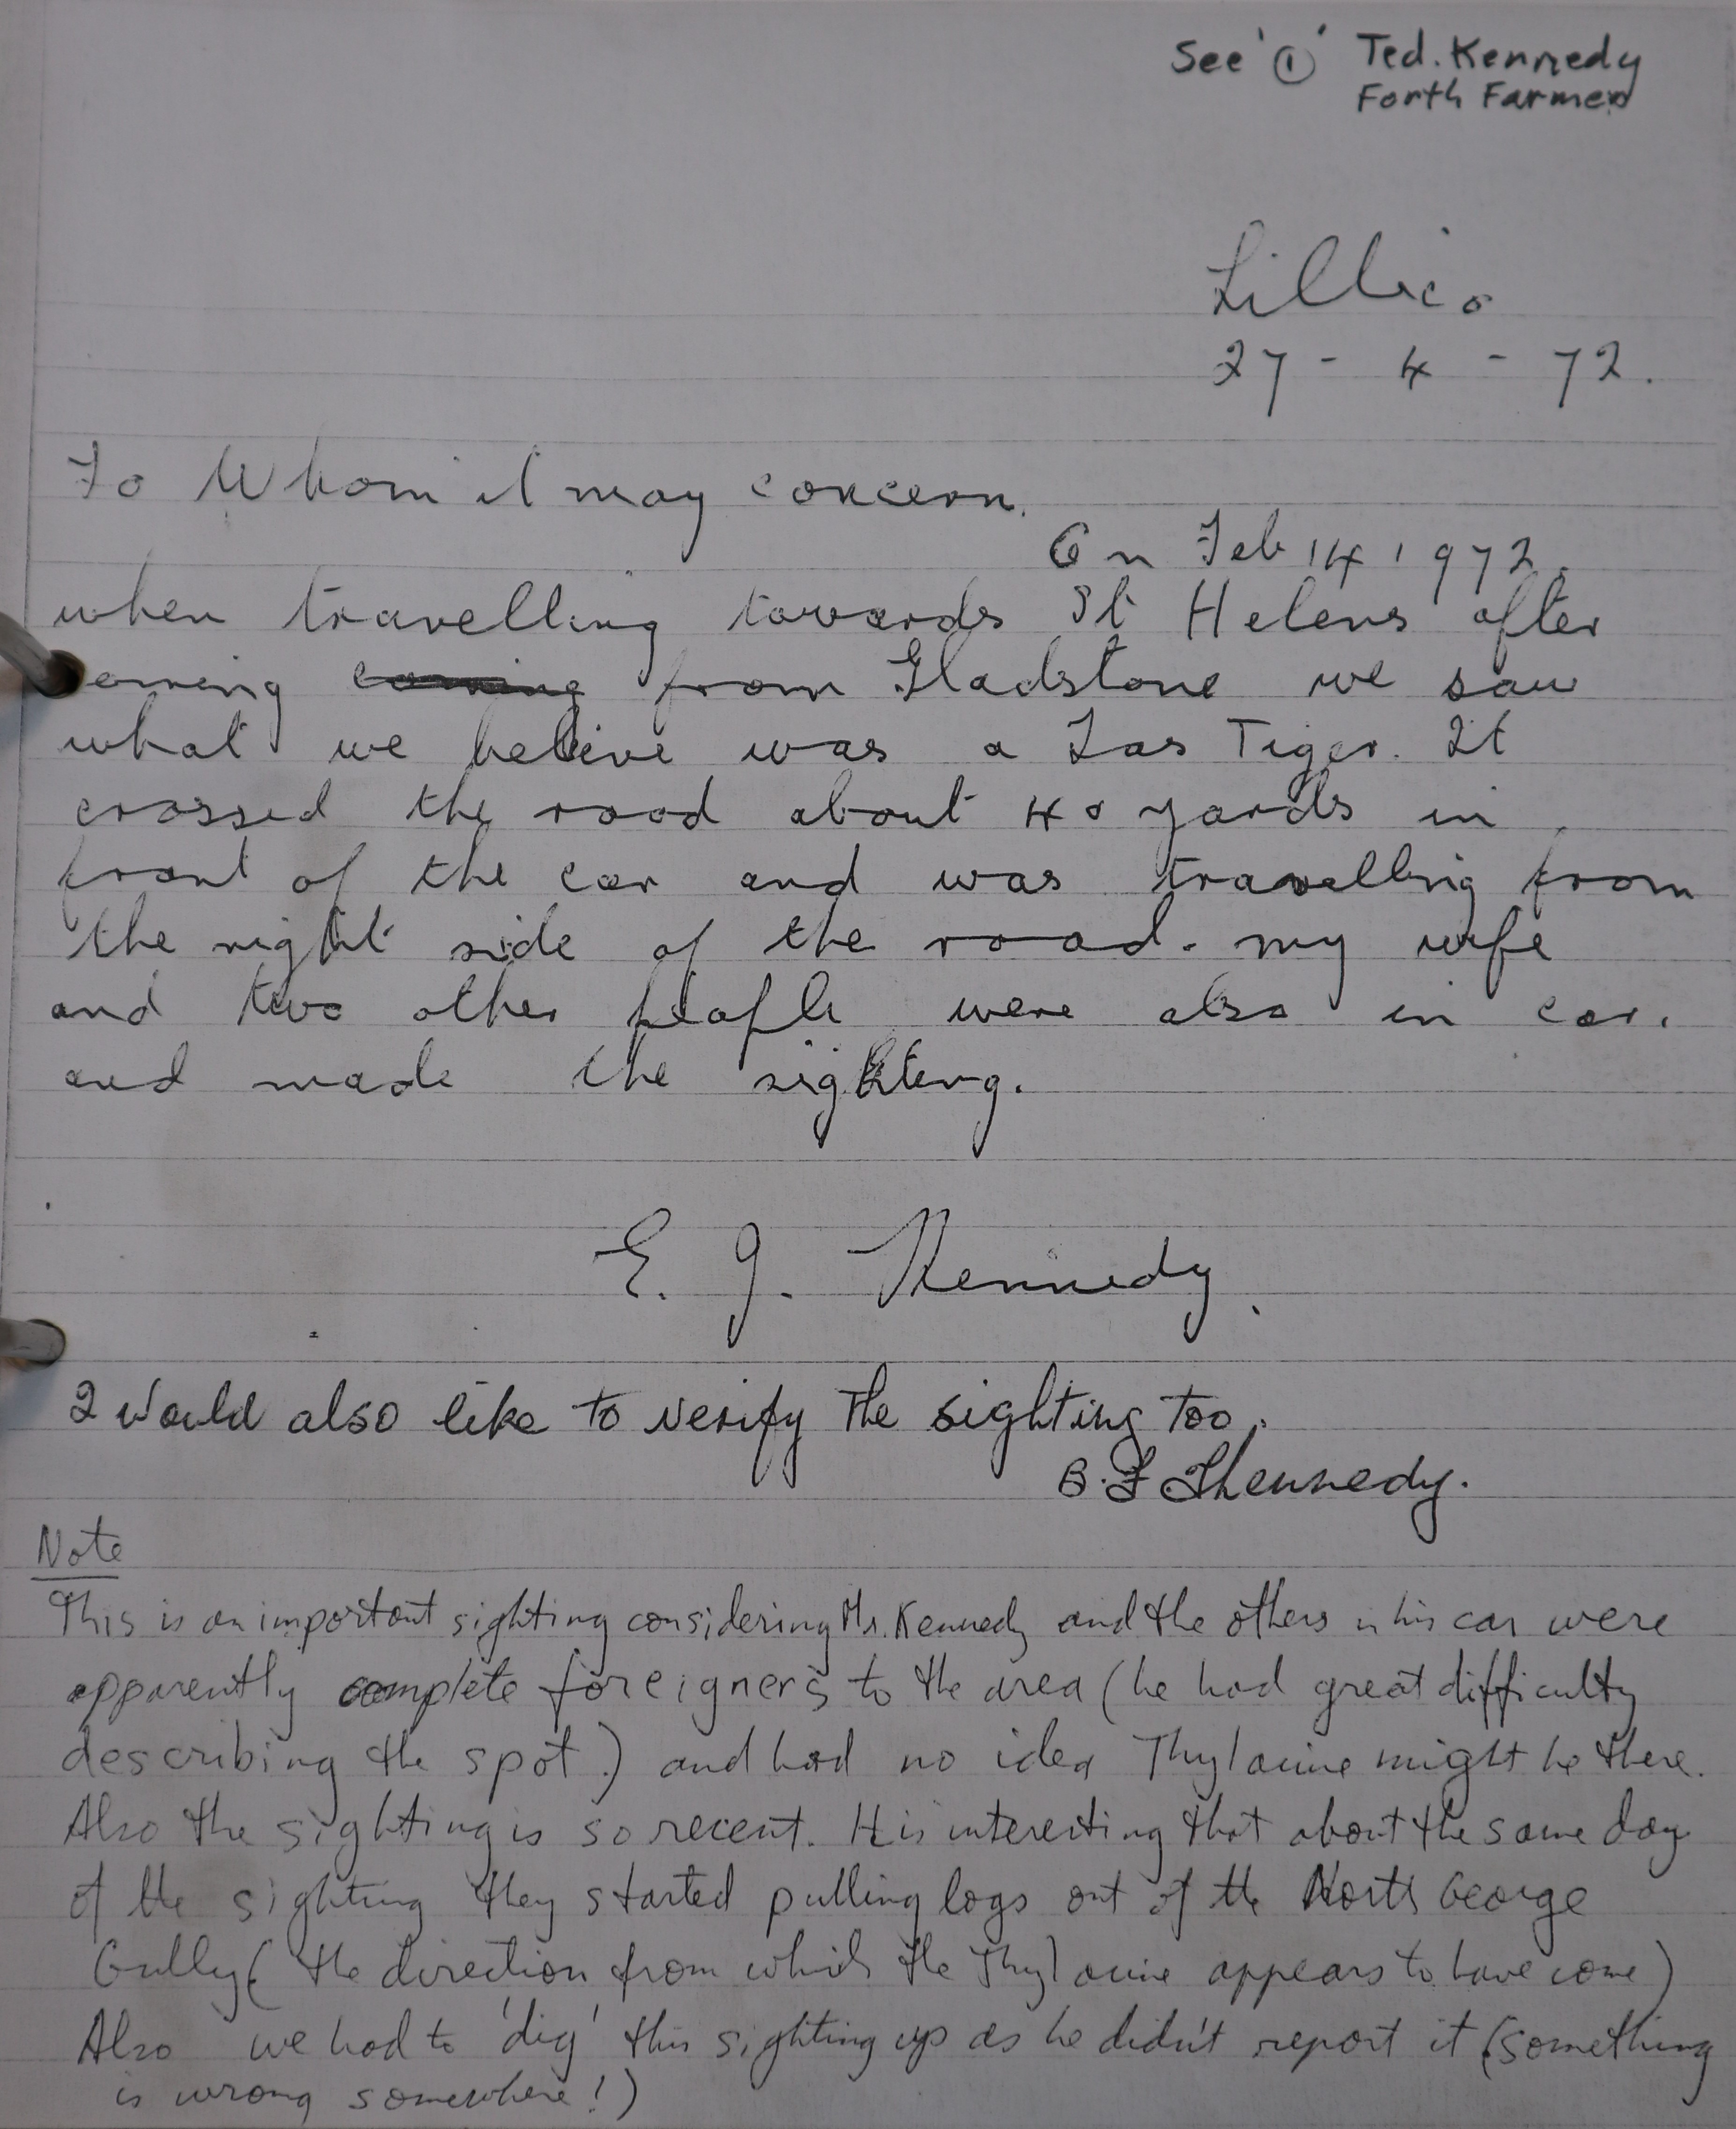 See '①' Ted. Kennedy
Forth Farmer
Lillico
27 - 4 - 72.
To Whom it may concern.
On Feb 14 1972.
when travelling towards St Helens after
coming coming from Gladstone we saw
what we believe was a Tas Tiger. It
crossed the road about 40 yards in
front of the car and was travelling from
the right side of the road. my wife
and two other people were also in car.
and made the sighting.
E. J. Kennedy.
I would also like to verify the sighting too.
B. F Kennedy.
Note
This is an important sighting considering Mr. Kennedy and the others in his car were
apparently complete foreigners to the area (he had great difficulty
describing the spot.) and had no idea Thylacine might be there.
Also the sighting is so recent. It is interesting that about the same day
of the sighting they started pulling logs out of the North George
Gully (the direction from which the Thylacine appears to have come)
Also we had to 'dig' this sighting up as he didn't report it (something
is wrong somewhere!)